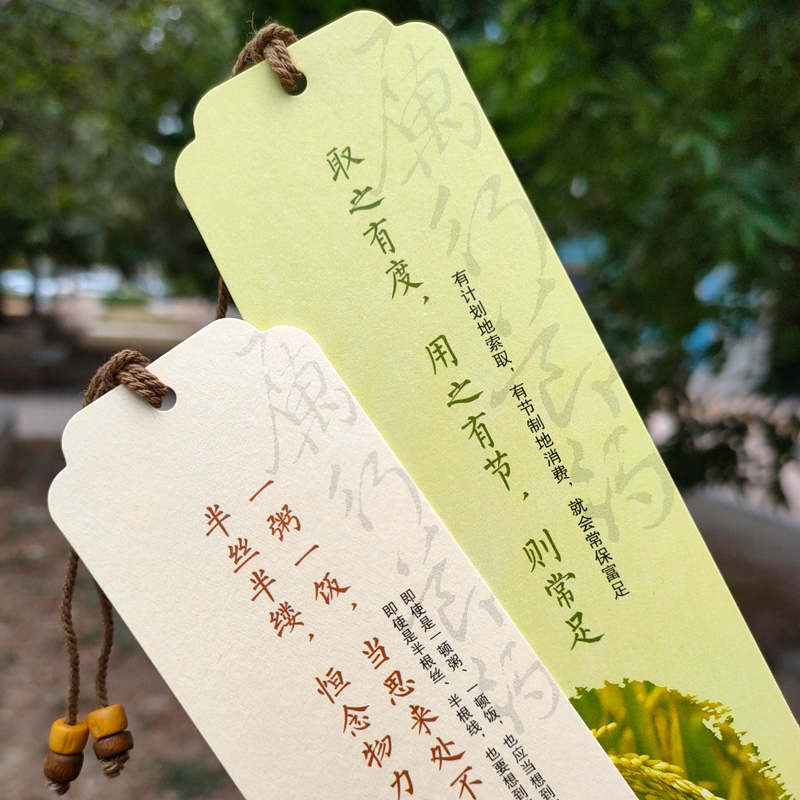 取之有度，用之有节，则常足
有计划地索取，有节制地消费，就会常保富足
一粥一饭，当思来处不
半丝半缕，恒念物力
即使是一顿粥、一顿饭，也应当想到
即使是半根丝、半根线，也要想到